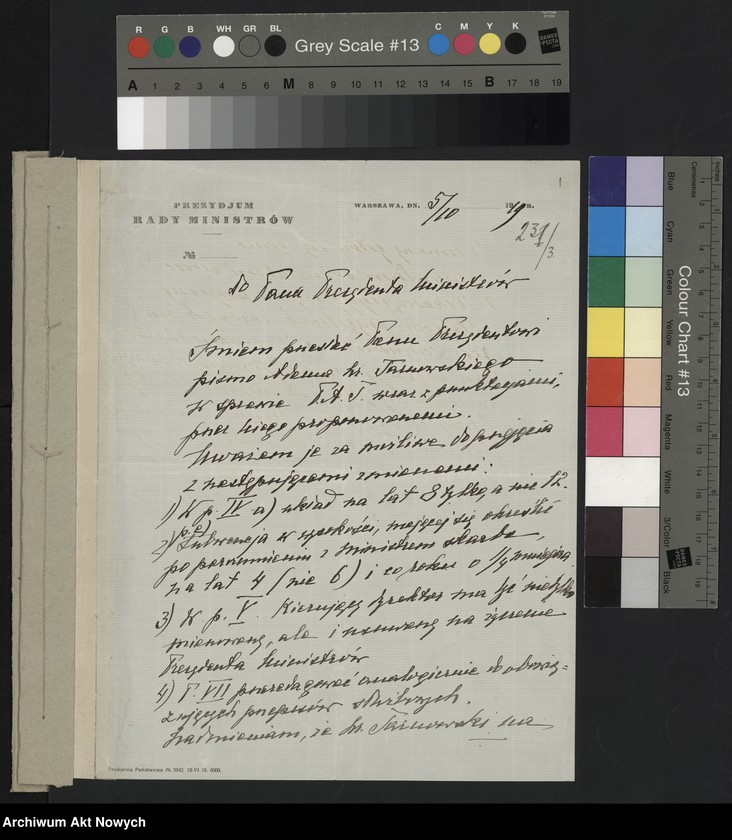 R G B WH GR BL Grey Scale #13 C M Y K DANES PICTA
A 1 2 3 4 5 6 M 8 9 10 11 12 13 14 15 B 17 18 19
PREZYDJUM
RADY MINISTRÓW
WARSZAWA, DN. 5/10 1919 R.
1
231/3.
№
do Pana Prezydenta Ministrów
Śmiem przesłać Panu Prezydentowi
pismo Adama hr. Tarnowskiego
w sprawie P.A.T. wraz z punktacjami,
przez niego proponowanemi.
Uważam je za możliwe do przyjęcia
z następującemi zmianami:
1) W p. IV a) układ na lat 8 tylko, a nie 12.
2) Subwencja w wysokości, mającej się określić
po porozumieniu z ministrem skarbu,
na lat 4 (nie 6) i co roku o 1/4 mniejsza.
3) W p. V. Kierujący dyrektor ma być nietylko
mianowany, ale i usuwany na życzenie
Prezydenta Ministrów
4) P. VII przeredagować analogicznie do obowią=
zujących przepisów służbowych.
Nadmieniam, że hr. Tarnowski ma
Drukarnia Państwowa № 1042. 18-VI 19. 6000.
Colour Chart #13
Blue Cyan Green Yellow Red Magenta White 3/Color Black
Centimetres Inches
Archiwum Akt Nowych